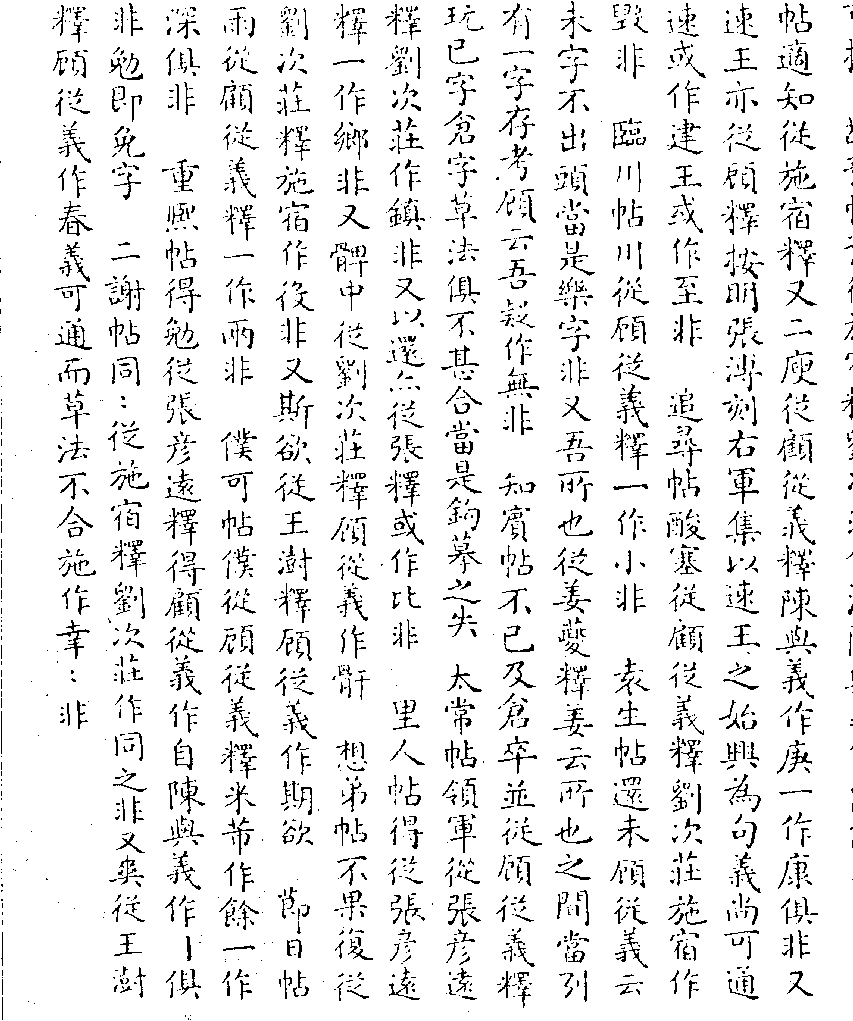 帖適知從施宿釋又二庾從顧從義釋陳與義作庚一作康俱非又
速王亦從顧釋按明張溥刻右軍集以速王之始興為句義尚可通
速或作建王或作至非　追尋帖酸塞從顧從義釋劉次莊施宿作
毀非　臨川帖川從顧從義釋一作小非　袁生帖還未顧從義云
未字不出頭當是樂字非又吾所也從姜夔釋姜云所也之間當列
有一字存考顧云吾疑作無非　知賓帖不已及倉卒並從顧從義釋
玩已字倉字草法俱不甚合當是鈎摹之失　太常帖領軍從張彥遠
釋劉次莊作鎮非又以還尓從張釋或作比非　里人帖得從張彥遠
釋一作鄉非又髀中從劉次莊釋顧從義作骭　想弟帖不果復從
劉次莊釋施宿作後非又斯欲從王澍釋顧從義作期欲　節日帖
雨從顧從義釋一作兩非　僕可帖僕從顧從義釋米芾作餘一作
深俱非　重熙帖得勉從張彥遠釋得顧從義作自陳與義作丨俱
非勉即免字　二謝帖同：從施宿釋劉次莊作同之非又奭從王澍
釋顧從義作春義可通而草法不合施作幸：非